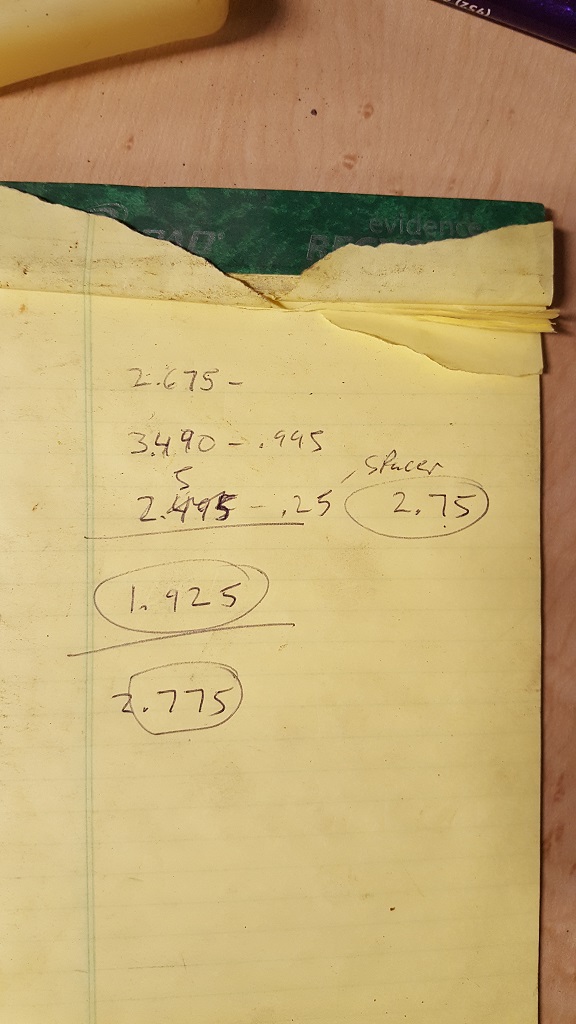 evidence
2.675 -
3.490 - .995
5
2.495 - .25 spacer 2.75
1.925
2.775